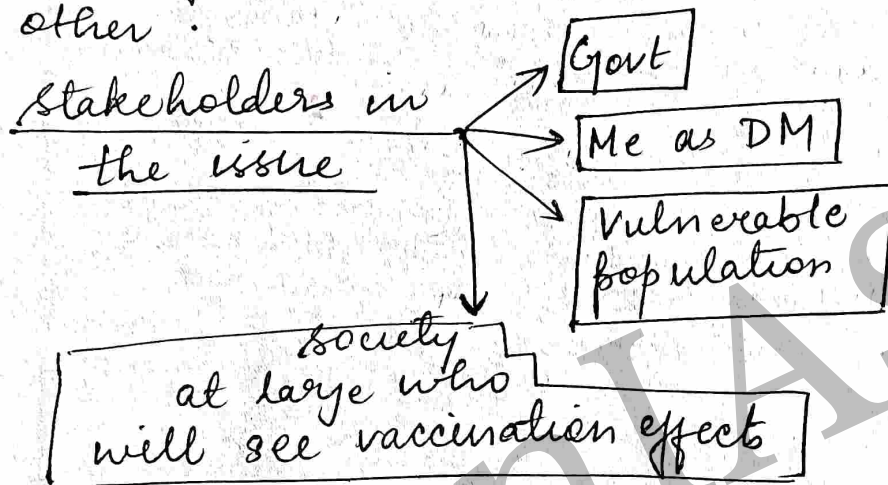 other :
stakeholders in
the issue
Govt
Me as DM
Vulnerable
population
society
at large who
will see vaccination effects
IAS